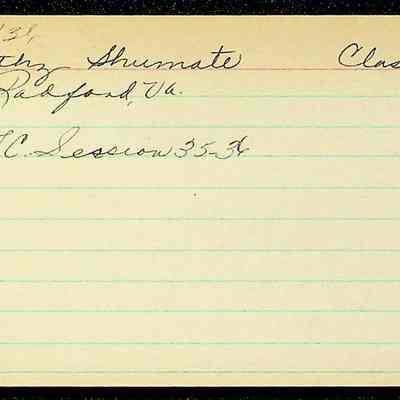 Shumate Clas
Radford, Va.
C. Session 35-36